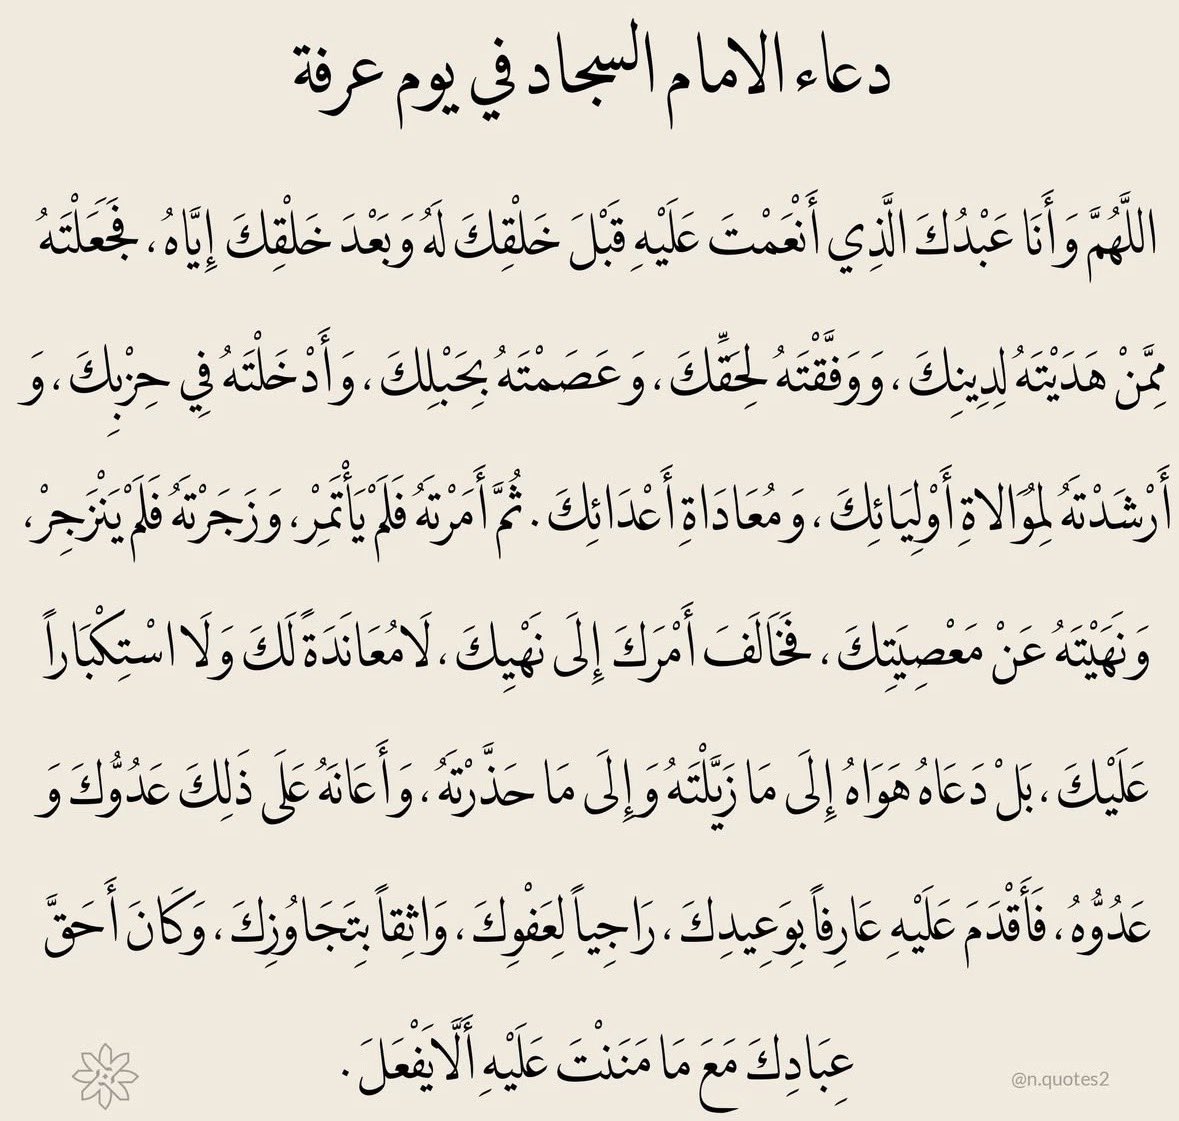 دعاء الامام السجاد في يوم عرفة
اللَّهُمَّ وَأَنَا عَبْدُكَ الَّذِي أَنْعَمْتَ عَلَيْهِ قَبْلَ خَلْقِكَ لَهُ وَبَعْدَ خَلْقِكَ إِيَّاهُ، فَجَعَلْتَهُ
مِمَّنْ هَدَيْتَهُ لِدِينِكَ، وَوَفَّقْتَهُ لِحَقِّكَ، وَعَصَمْتَهُ بِحَبْلِكَ، وَأَدْخَلْتَهُ فِي حِزْبِكَ، وَ
أَرْشَدْتَهُ لِمُوَالاةِ أَوْلِيَائِكَ، وَمُعَادَاةِ أَعْدَائِكَ. ثُمَّ أَمَرْتَهُ فَلَمْ يَأْتَمِرْ، وَزَجَرْتَهُ فَلَمْ يَنْزَجِرْ،
وَنَهَيْتَهُ عَنْ مَعْصِيَتِكَ، فَخَالَفَ أَمْرَكَ إِلَى نَهْيِكَ، لَا مُعَانَدَةً لَكَ وَلَا اسْتِكْبَاراً
عَلَيْكَ، بَلْ دَعَاهُ هَوَاهُ إِلَى مَا زَيَّلْتَهُ وَإِلَى مَا حَذَّرْتَهُ، وَأَعَانَهُ عَلَى ذَلِكَ عَدُوُّكَ وَ
عَدُوُّهُ، فَأَقْدَمَ عَلَيْهِ عَارِفاً بِوَعِيدِكَ، رَاجِياً لِعَفْوِكَ، وَاثِقاً بِتَجَاوُزِكَ، وَكَانَ أَحَقَّ
عِبَادِكَ مَعَ مَا مَنَنْتَ عَلَيْهِ أَلَّا يَفْعَلَ.
@n.quotes2